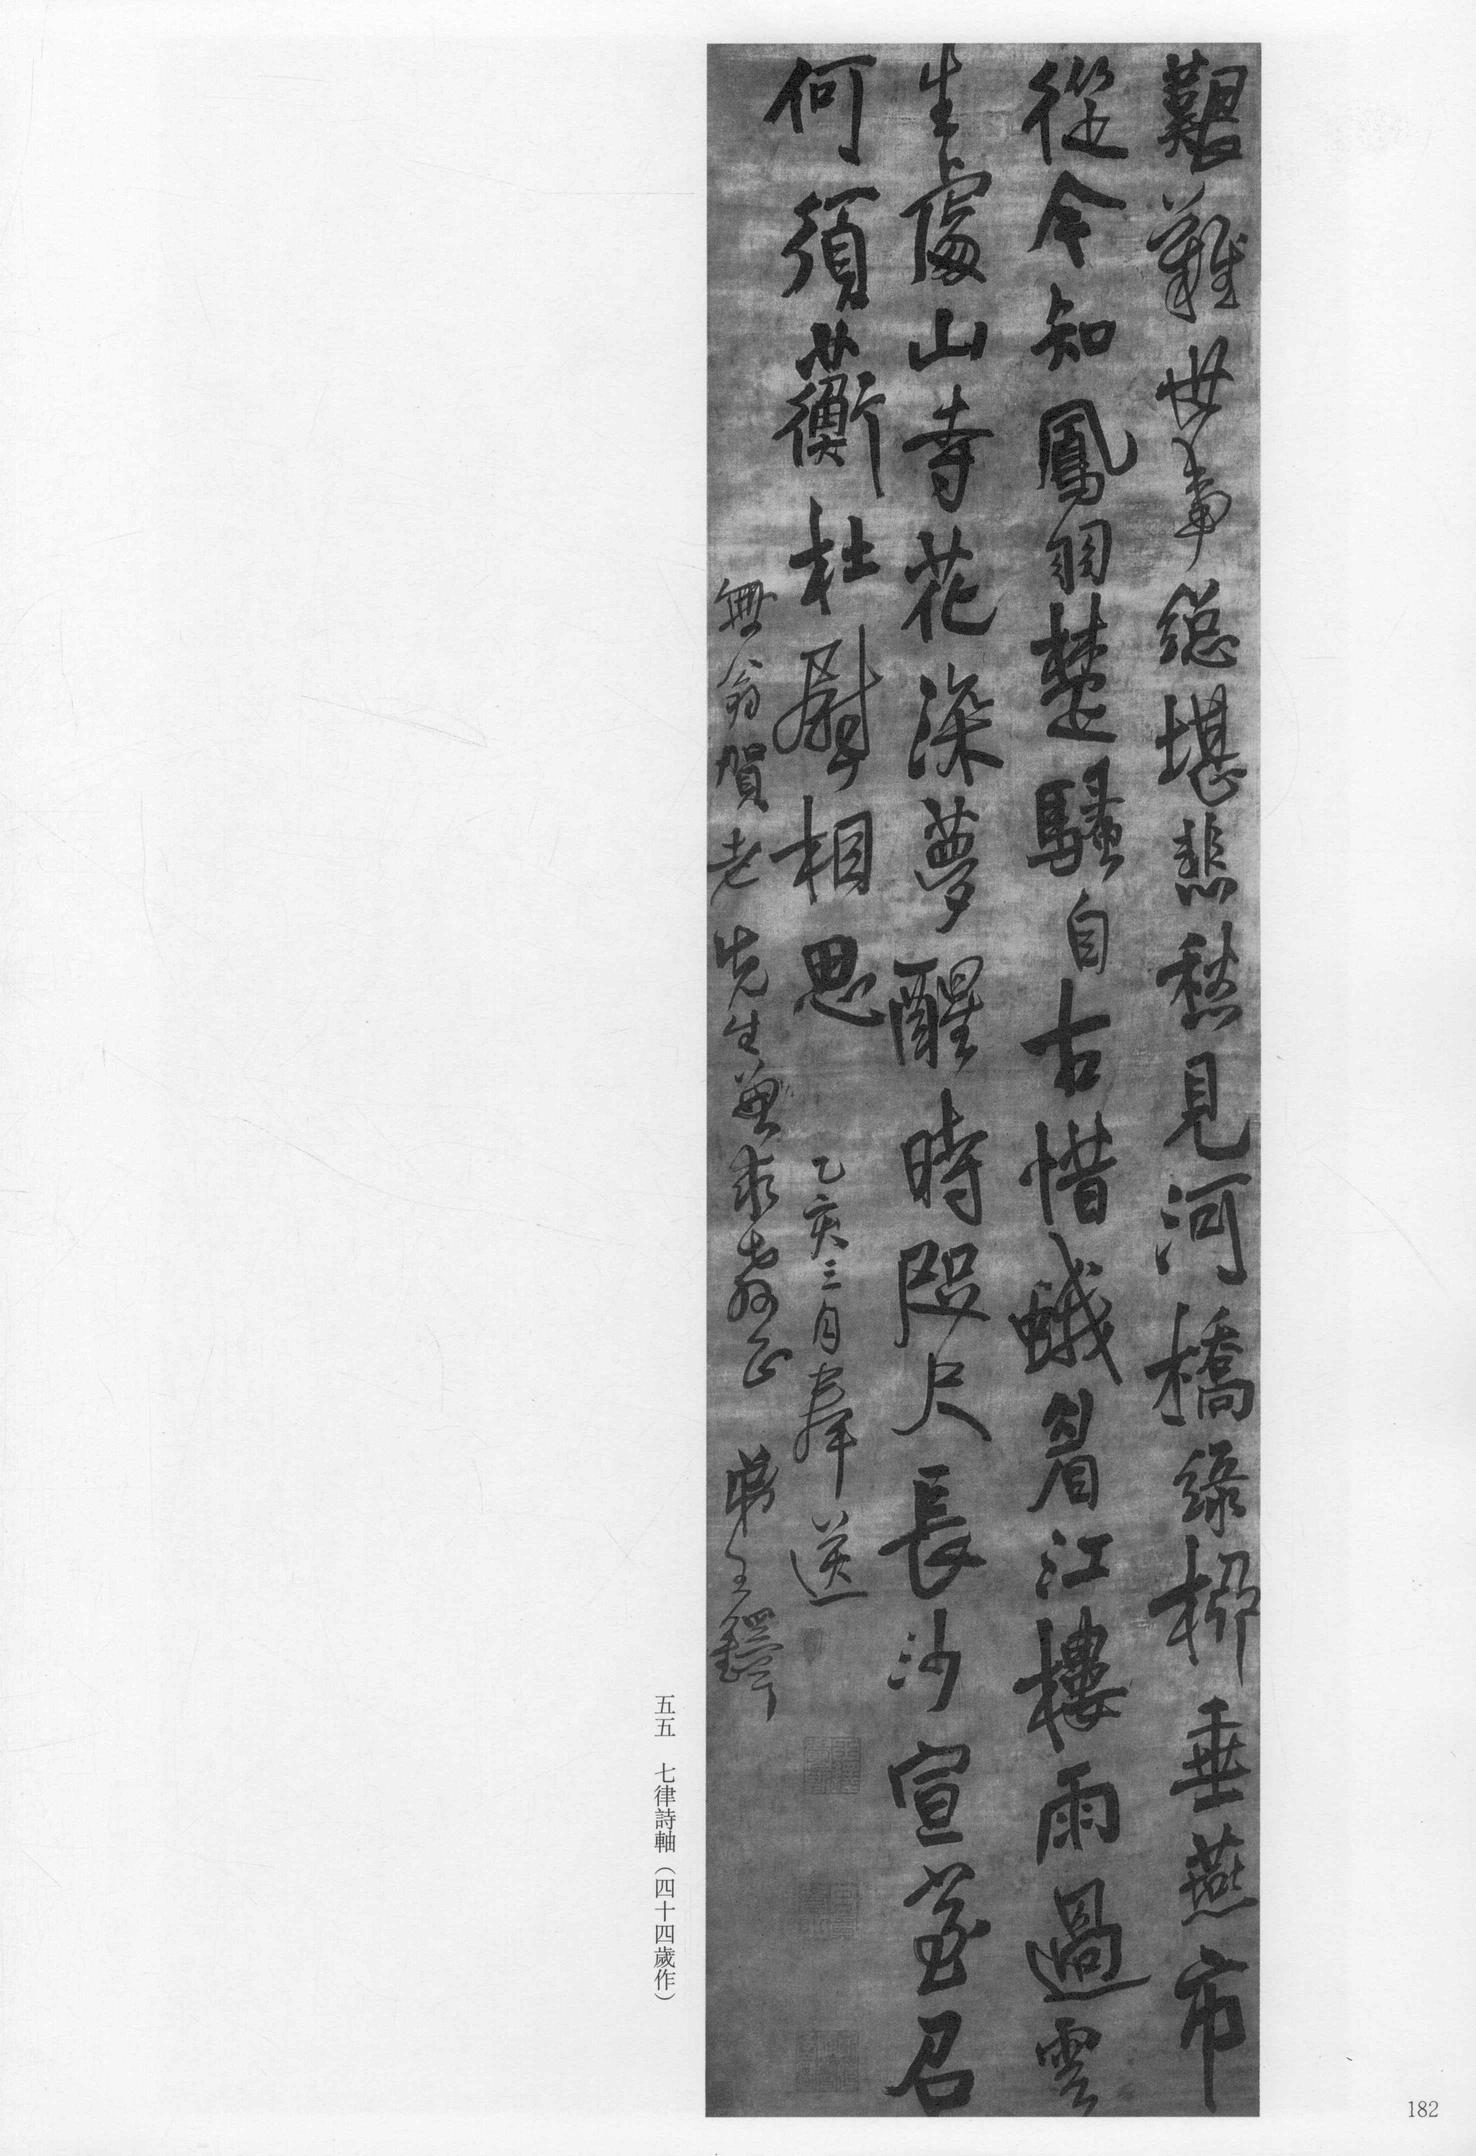 艱難世事總堪悲愁見河橋綠柳垂燕市
從今知鳳羽楚騷自古惜蛾眉江樓雨過雲
生處山寺花深夢醒時咫尺長沙宣室召
何須蘅杜慰相思
乙亥三月奉送
無翁賀老先生兼求教正 弟王鐸
五五 七律詩軸（四十四歲作）
182